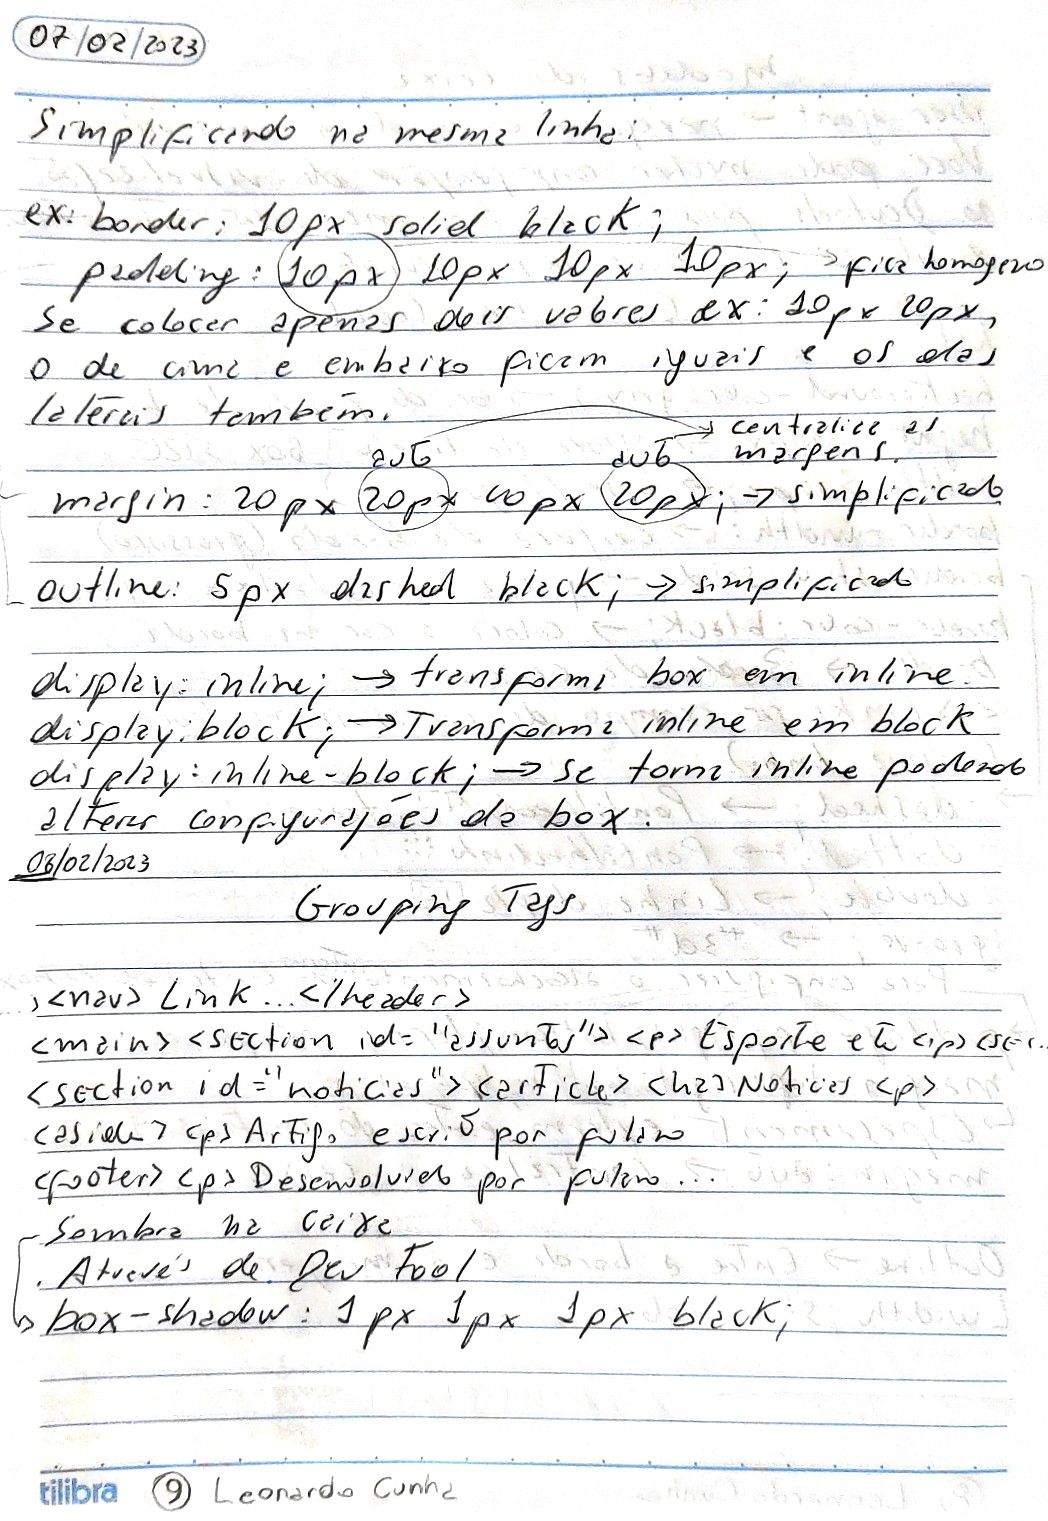 07/02/2023
Simplificando na mesma linha:
ex: border: 10px solid black;
padding: 10px 10px 10px 10px; > fica homogeno
Se colocar apenas dois valores ex: 10px 20px,
o de cima e embaixo ficam iguais e os das
laterais também.
auto auto → centraliza as
margens.
margin: 20px 20px 40px 20px; → simplificado
outline: 5px dashed black; → simplificado
display: inline; → transforma box em inline.
display: block; → Transforma inline em block
display: inline-block; → se torna inline podendo
alterar configurações da box.
08/02/2023
Grouping Tags
, <nav> Link... </header>
<main> <section id= "assuntos"> <p> Esporte etc <p> <sec...
<section id="noticias"> <article> <h2> Noticias <p>
<aside> <p> Artigo escrito por fulano
<footer> <p> Desenvolvido por fulano...
Sombra na caixa
. Através de Dev Tool
→ box-shadow: 1px 1px 1px black;
tilibra 9 Leonardo Cunha